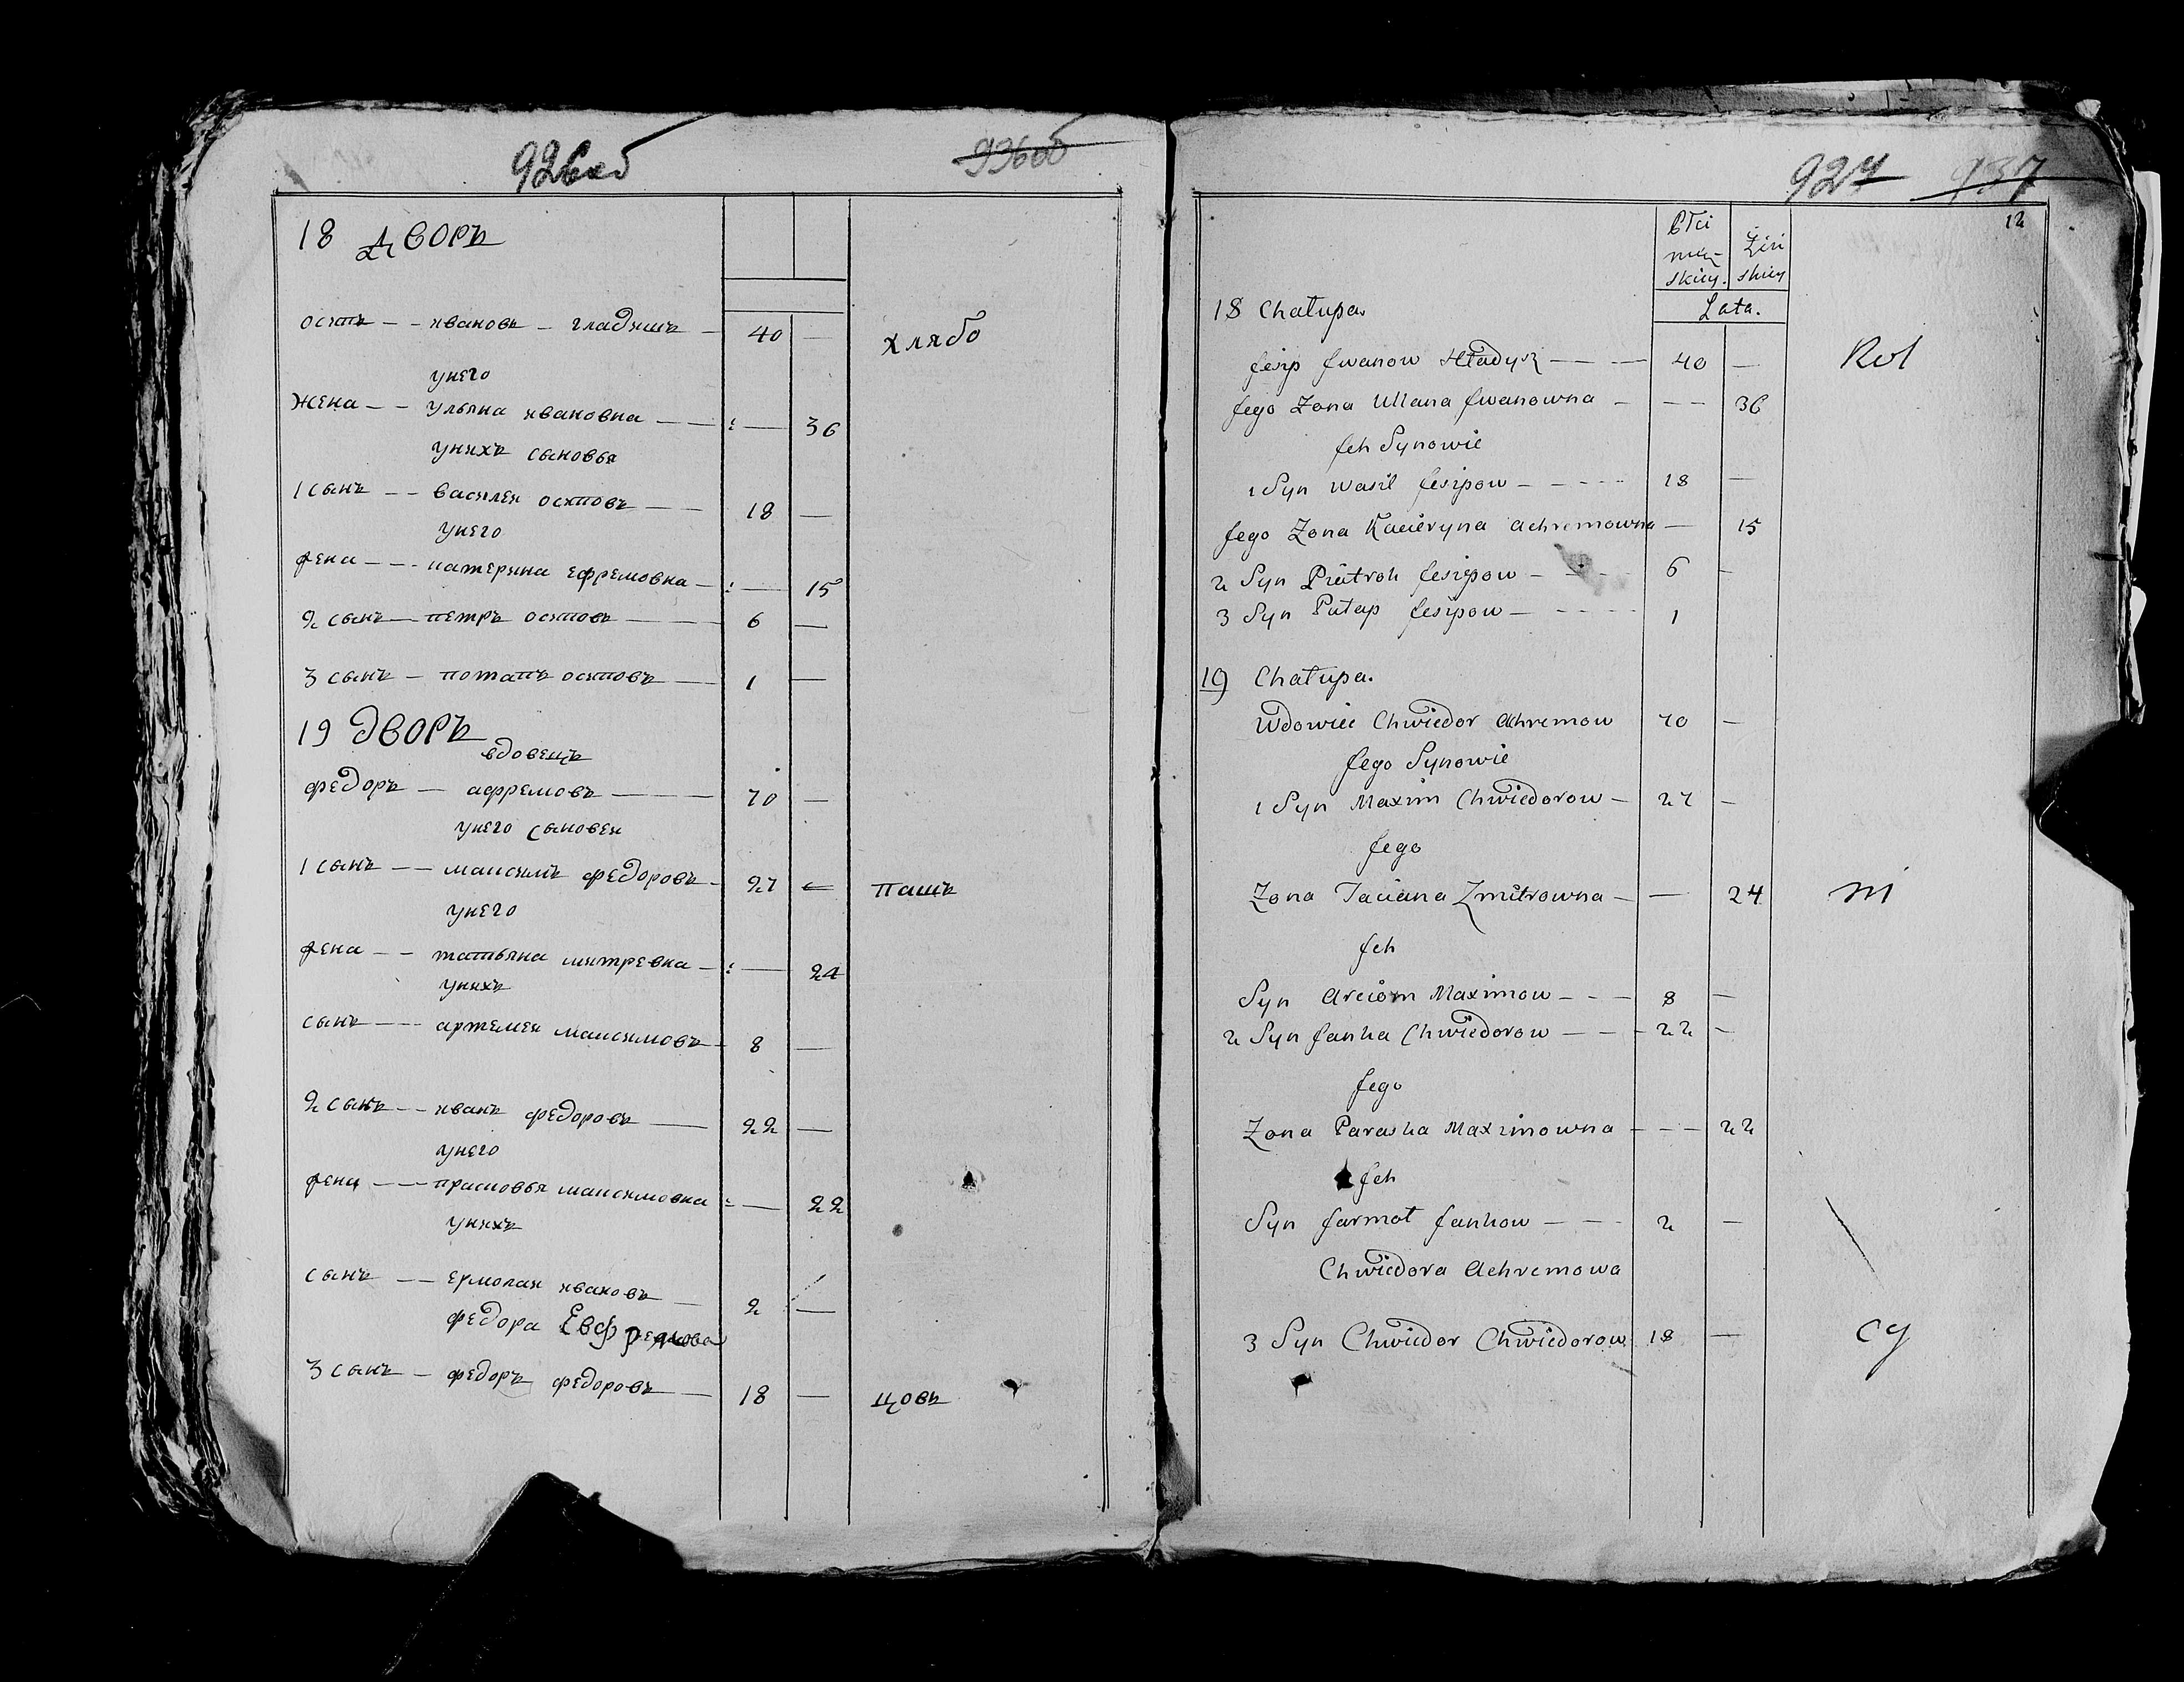 926об 936об
18 дворъ
осипъ – – ивановъ – гладишъ – 40 — хлябо
унего
жена – – ульяна ивановна — — : — 36
унихъ сыновья
1 сынъ – – василеи осиповъ — — 18 —
унего
жена – – – катерина ефремовна – : — 15
2 сынъ — петръ осиповъ — — 6 —
3 сынъ – потапъ осиповъ — — 1 —
19 дворъ
вдовецъ
федоръ — афремовъ — — — 70 —
унего сыновеи
1 сынъ – – максимъ федоровъ – 27 — пашъ
унего
жена – – татьяна митревна – : — 24
унихъ
сынъ – – – артемеи максимовъ – 8 —
2 сынъ – – иванъ федоровъ — 22 —
унего
жена – – прасковья максимовна : — 22
унихъ
сынъ – – ермолаи ивановъ — 2 —
федора Евфремова
3 сынъ – федоръ федоровъ — 18 — цовъ
927 937
12
Płci męzkiey. Żeńskiey
Lata.
18 Chałupa.
Jesip Jwanow Hładysz — — — 40 — Rol
Jego Zona Ullana Jwanowna – – – – 36
Jch Synowie
1 Syn Wasil Jesipow – – – – – 18 —
Jego Zona Kacieryna Achremowna — 15
2 Syn Piatroh Jesipow – – – – 6 –
3 Syn Patap Jesipow – – – – – 1
19 Chałupa.
Wdowiec Chwiedor Ahremow 70 –
Jego Synowie
1 Syn Maxim Chwiedorow – 27 –
Jego
Zona Taciana Zmitrowna – — 24 ni
Jch
Syn Arciom Maximow – – – 8 —
2 Syn Janka Chwiedorow – – – 22 –
Jego
Zona Paraska Maximowna – – – 22
Jch
Syn Jarmoł Jankow – – – 2 –
Chwiedora Achremowa
3 Syn Chwiedor Chwiedorow 18 — cy